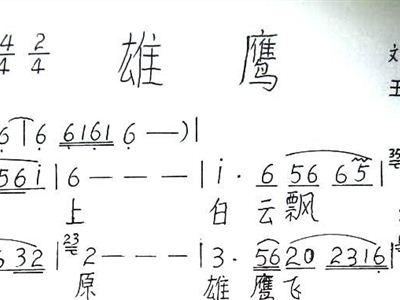 4/4 2/4 雄鹰
6 | 6 6161 6 — —)|
561 | 6 — — — | i · 6 56 65 |
上 白云飘
32 | 23 2 — — — | 3 · 5620 2316 |
原 雄鹰飞